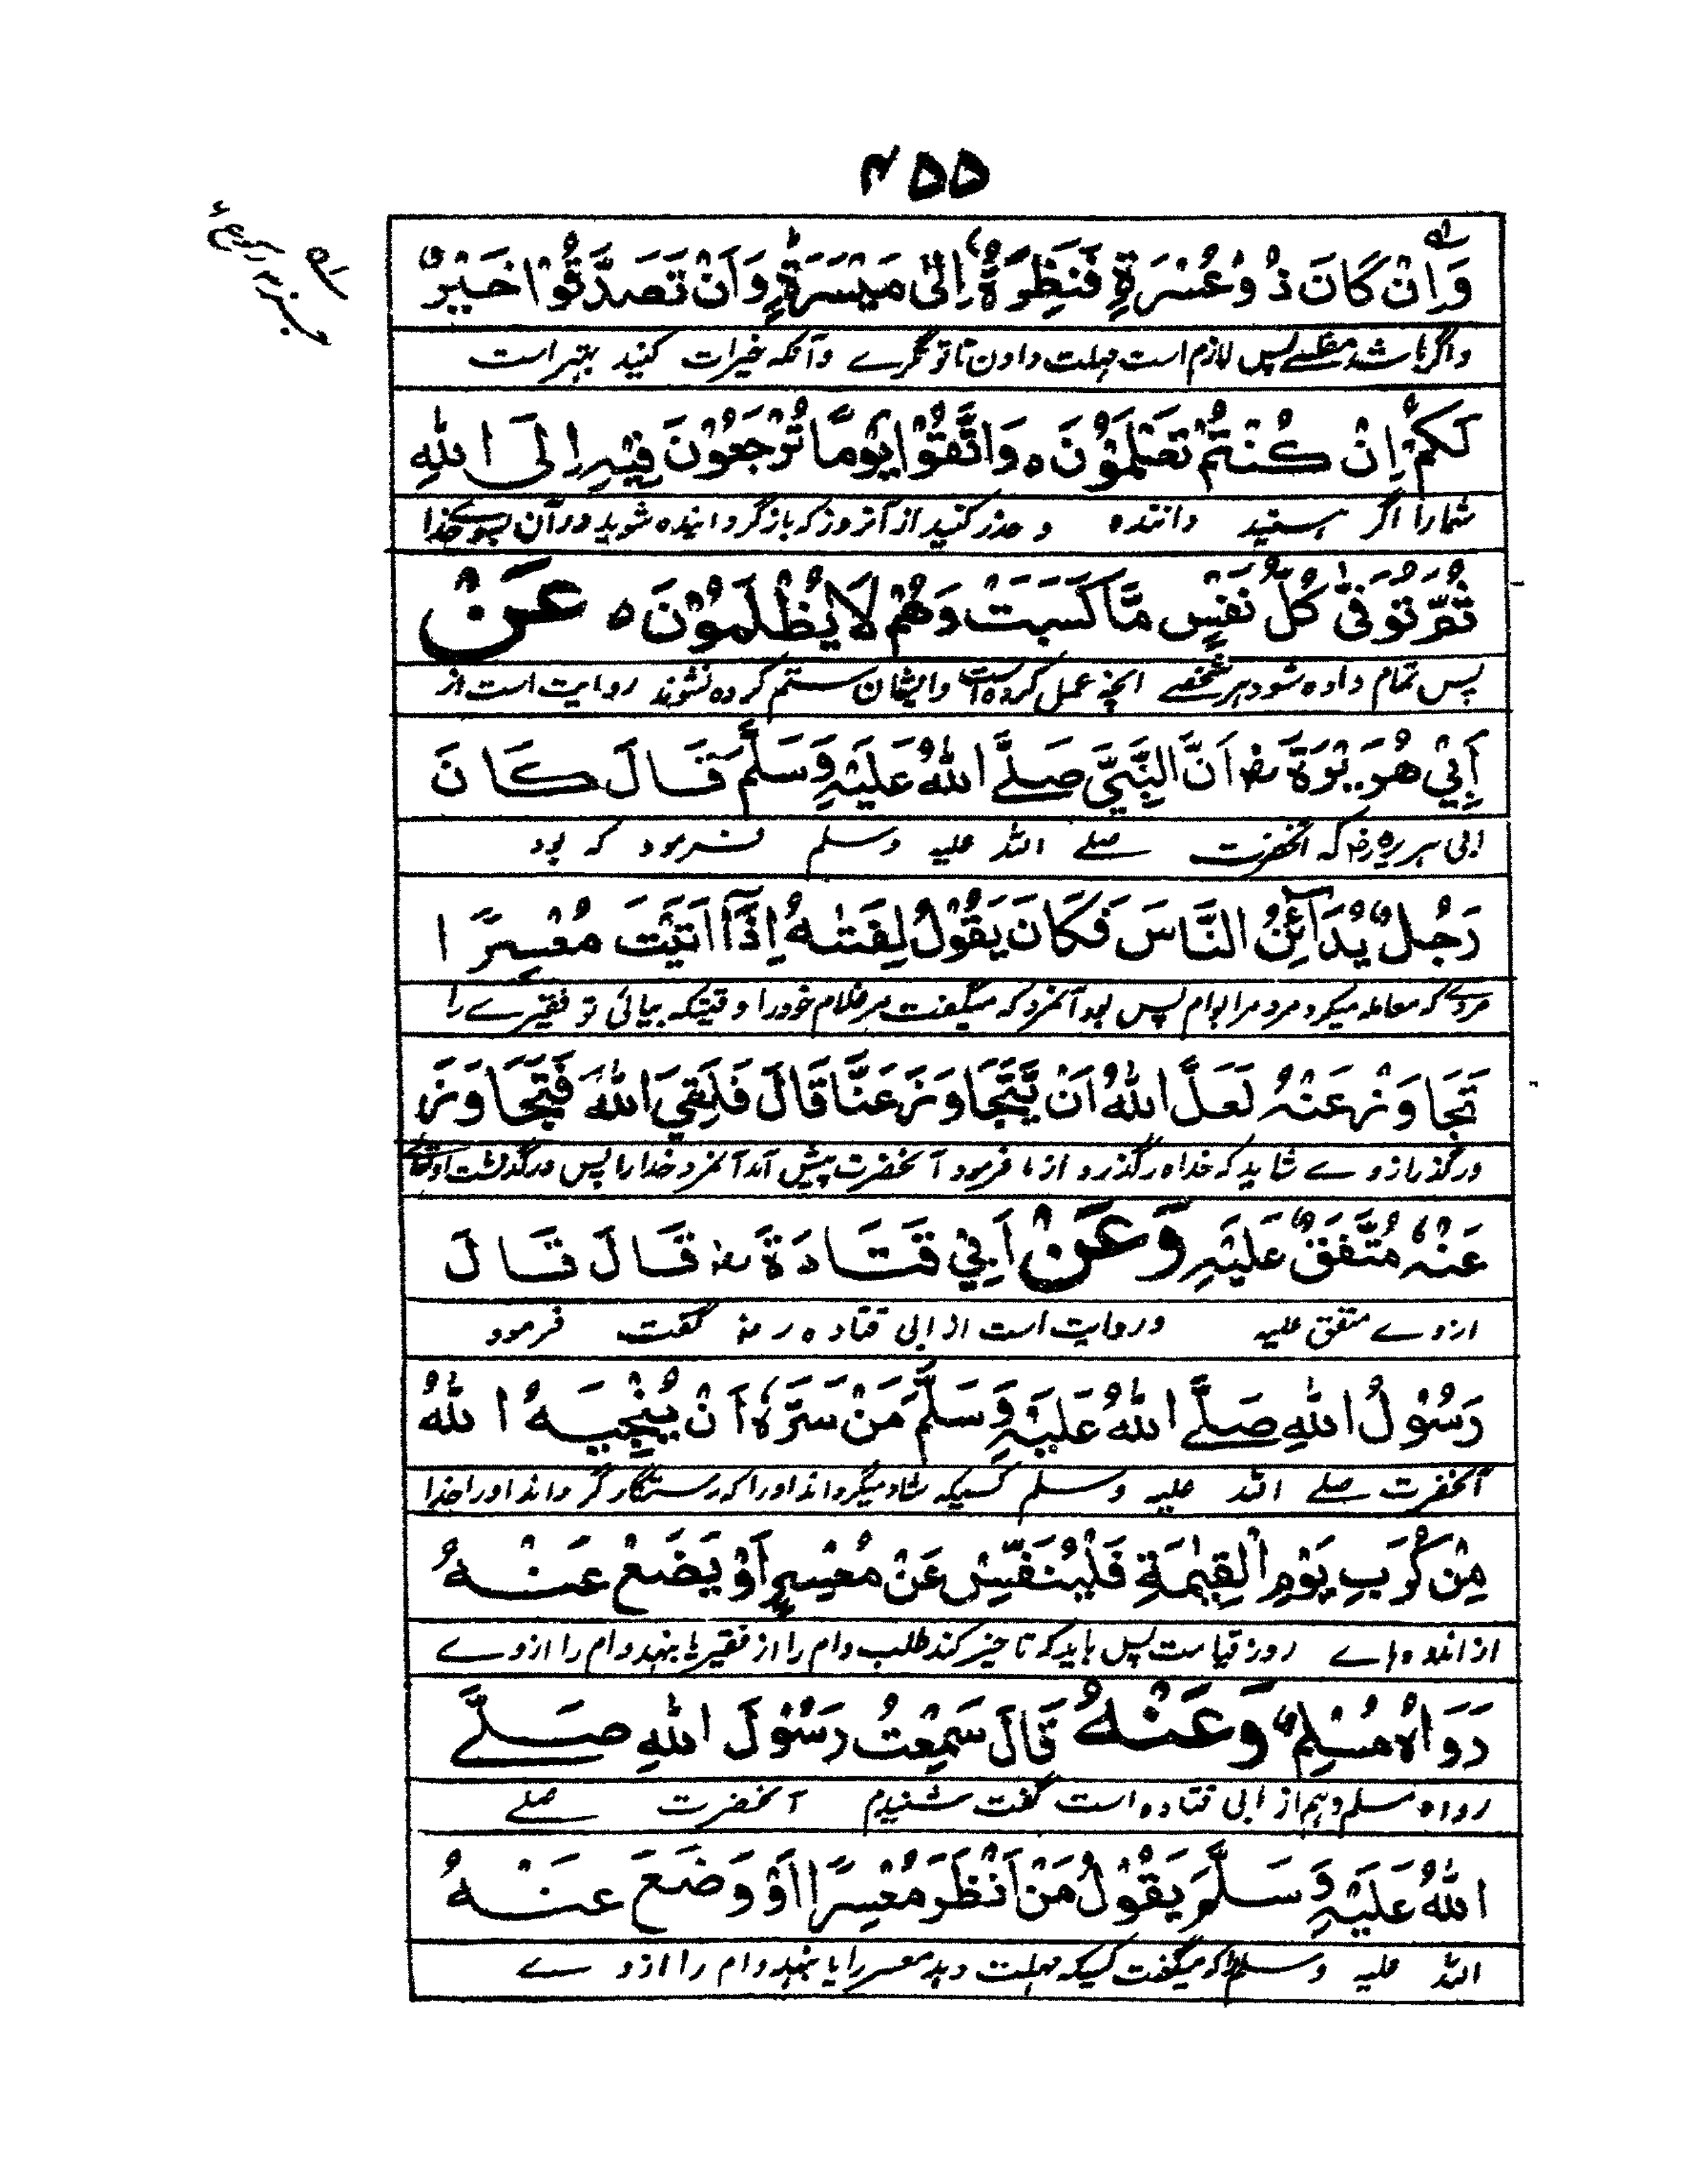 ۴۵۵
وَاِنْ كَانَ ذُوْعُسْرَةٍ فَنَظِرَةٌ اِلٰى مَيْسَرَةٍ وَاَنْ تَصَدَّقُوْا خَيْرٌ
واگر باشد مفلسے پس لازم است مہلت دادن تا تونگرے وآنکه خیرات کنید بہتر است
لَكُمْ اِنْ كُنْتُمْ تَعْلَمُوْنَ ه وَاتَّقُوْا يَوْمًا تُرْجَعُوْنَ فِيْهِ اِلَى اللهِ
شمارا اگر ہستید دانندہ و حذر کنید از آنروز که باز گردانیدہ شوید در آن بسوے خدا
ثُمَّ تُوَفّٰى كُلُّ نَفْسٍ مَّا كَسَبَتْ وَهُمْ لَا يُظْلَمُوْنَ ه عَنْ
پس تمام دادہ شود ہر شخصے انچہ عمل کردہ است وایشان ستم کردہ نشوند روایت است از
اَبِيْ هُرَيْرَةَ رض اَنَّ النَّبِيَّ صَلَّے اللهُ عَلَيْهِ وَسَلَّمَ قَالَ كَانَ
ابی ہریرہ رض که آنحضرت صلے اللہ علیہ وسلم فرمود که بود
رَجُلٌ يُدَآئِنُ النَّاسَ فَكَانَ يَقُوْلُ لِفَتٰهُ اِذَآ اَتَيْتَ مُعْسِرًا
مردے که معاملہ میکرد مردمرا بوام پس بود آنمرد که میگفت مر غلام خود را وقتیکہ بیائی تو فقیرے را
تَجَاوَزْ عَنْهُ لَعَلَّ اللهُ اَنْ يَّتَجَاوَزَ عَنَّا قَالَ فَلَقِيَ اللهَ فَتَجَاوَزَ
درگذر ازوے شاید که خدا درگذرد از ما فرمود آنحضرت پیش آمد آنمرد خدا را پس درگذشت
عَنْهُ مُتَّفَقٌ عَلَيْهِ وَعَنْ اَبِيْ قَتَادَةَ رض قَالَ قَالَ
ازوے متفق علیہ وروایت است از ابی قتادہ رض گفت فرمود
رَسُوْلُ اللهِ صَلَّے اللهُ عَلَيْهِ وَسَلَّمَ مَنْ سَرَّهٗ اَنْ يُنْجِيَهُ اللهُ
آنحضرت صلے اللہ علیہ وسلم کسیکہ شاد میگرداند اورا که رستگار گرداند اورا خدا
مِنْ كُرَبِ يَوْمِ الْقِيٰمَةِ فَلْيُنَفِّسْ عَنْ مُعْسِرٍ اَوْ يَضَعْ عَنْهُ
از اندوہ ہاے روز قیامت پس باید که تاخیر کند طلب وام را از فقیر یا بنہد وام را ازوے
رَوَاهُ مُسْلِمٌ وَعَنْهُ قَالَ سَمِعْتُ رَسُوْلَ اللهِ صَلَّے
رواہ مسلم وہم از ابی قتادہ است گفت شنیدم آنحضرت صلے
اللهُ عَلَيْهِ وَسَلَّمَ يَقُوْلُ مَنْ اَنْظَرَ مُعْسِرًا اَوْ وَضَعَ عَنْهُ
اللہ علیہ وسلم را که میگفت کسیکہ مہلت دہد معسر را یا بنہد وام را ازوے